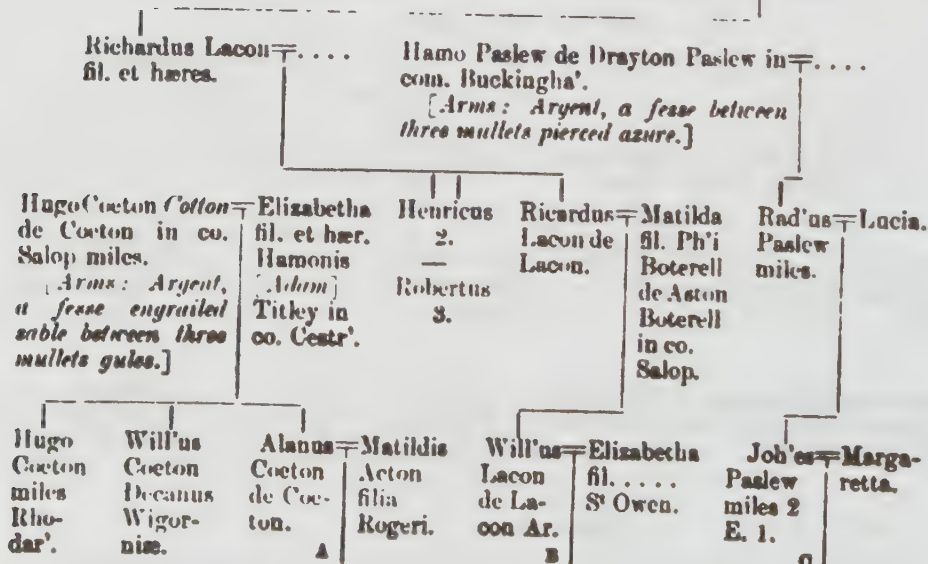 Richardus Lacon=. . . .
fil. et hæres.
Hamo Paslew de Drayton Paslew in=. . . .
com. Buckingha'.
[Arms: Argent, a fesse between
three mullets pierced azure.]
Hugo Cocton Cotton=
de Cocton in co.
Salop miles.
[Arms: Argent,
a fesse engrailed
sable between three
mullets gules.]
Elizabetha
fil. et hær.
Hamonis
[Adam]
Titley in
co. Cestr'.
Henricus
2.
—
Robertus
3.
Ricardus=
Lacon de
Lacon.
Matilda
fil. Ph'i
Boterell
de Aston
Boterell
in co.
Salop.
Rad'us=Lucia.
Paslew
miles.
Hugo
Cocton
miles
Rho-
dar'.
Will'us
Cocton
Decanus
Wigor-
niæ.
Alanus=
Cocton
de Coc-
ton.
Matildis
Acton
filia
Rogeri.
A
Will'us=
Lacon
de La-
con Ar.
Elizabetha
fil. . . . . .
St Owen.
B
Joh'es=Marga-
Paslew retta.
miles 2
E. 1.
C